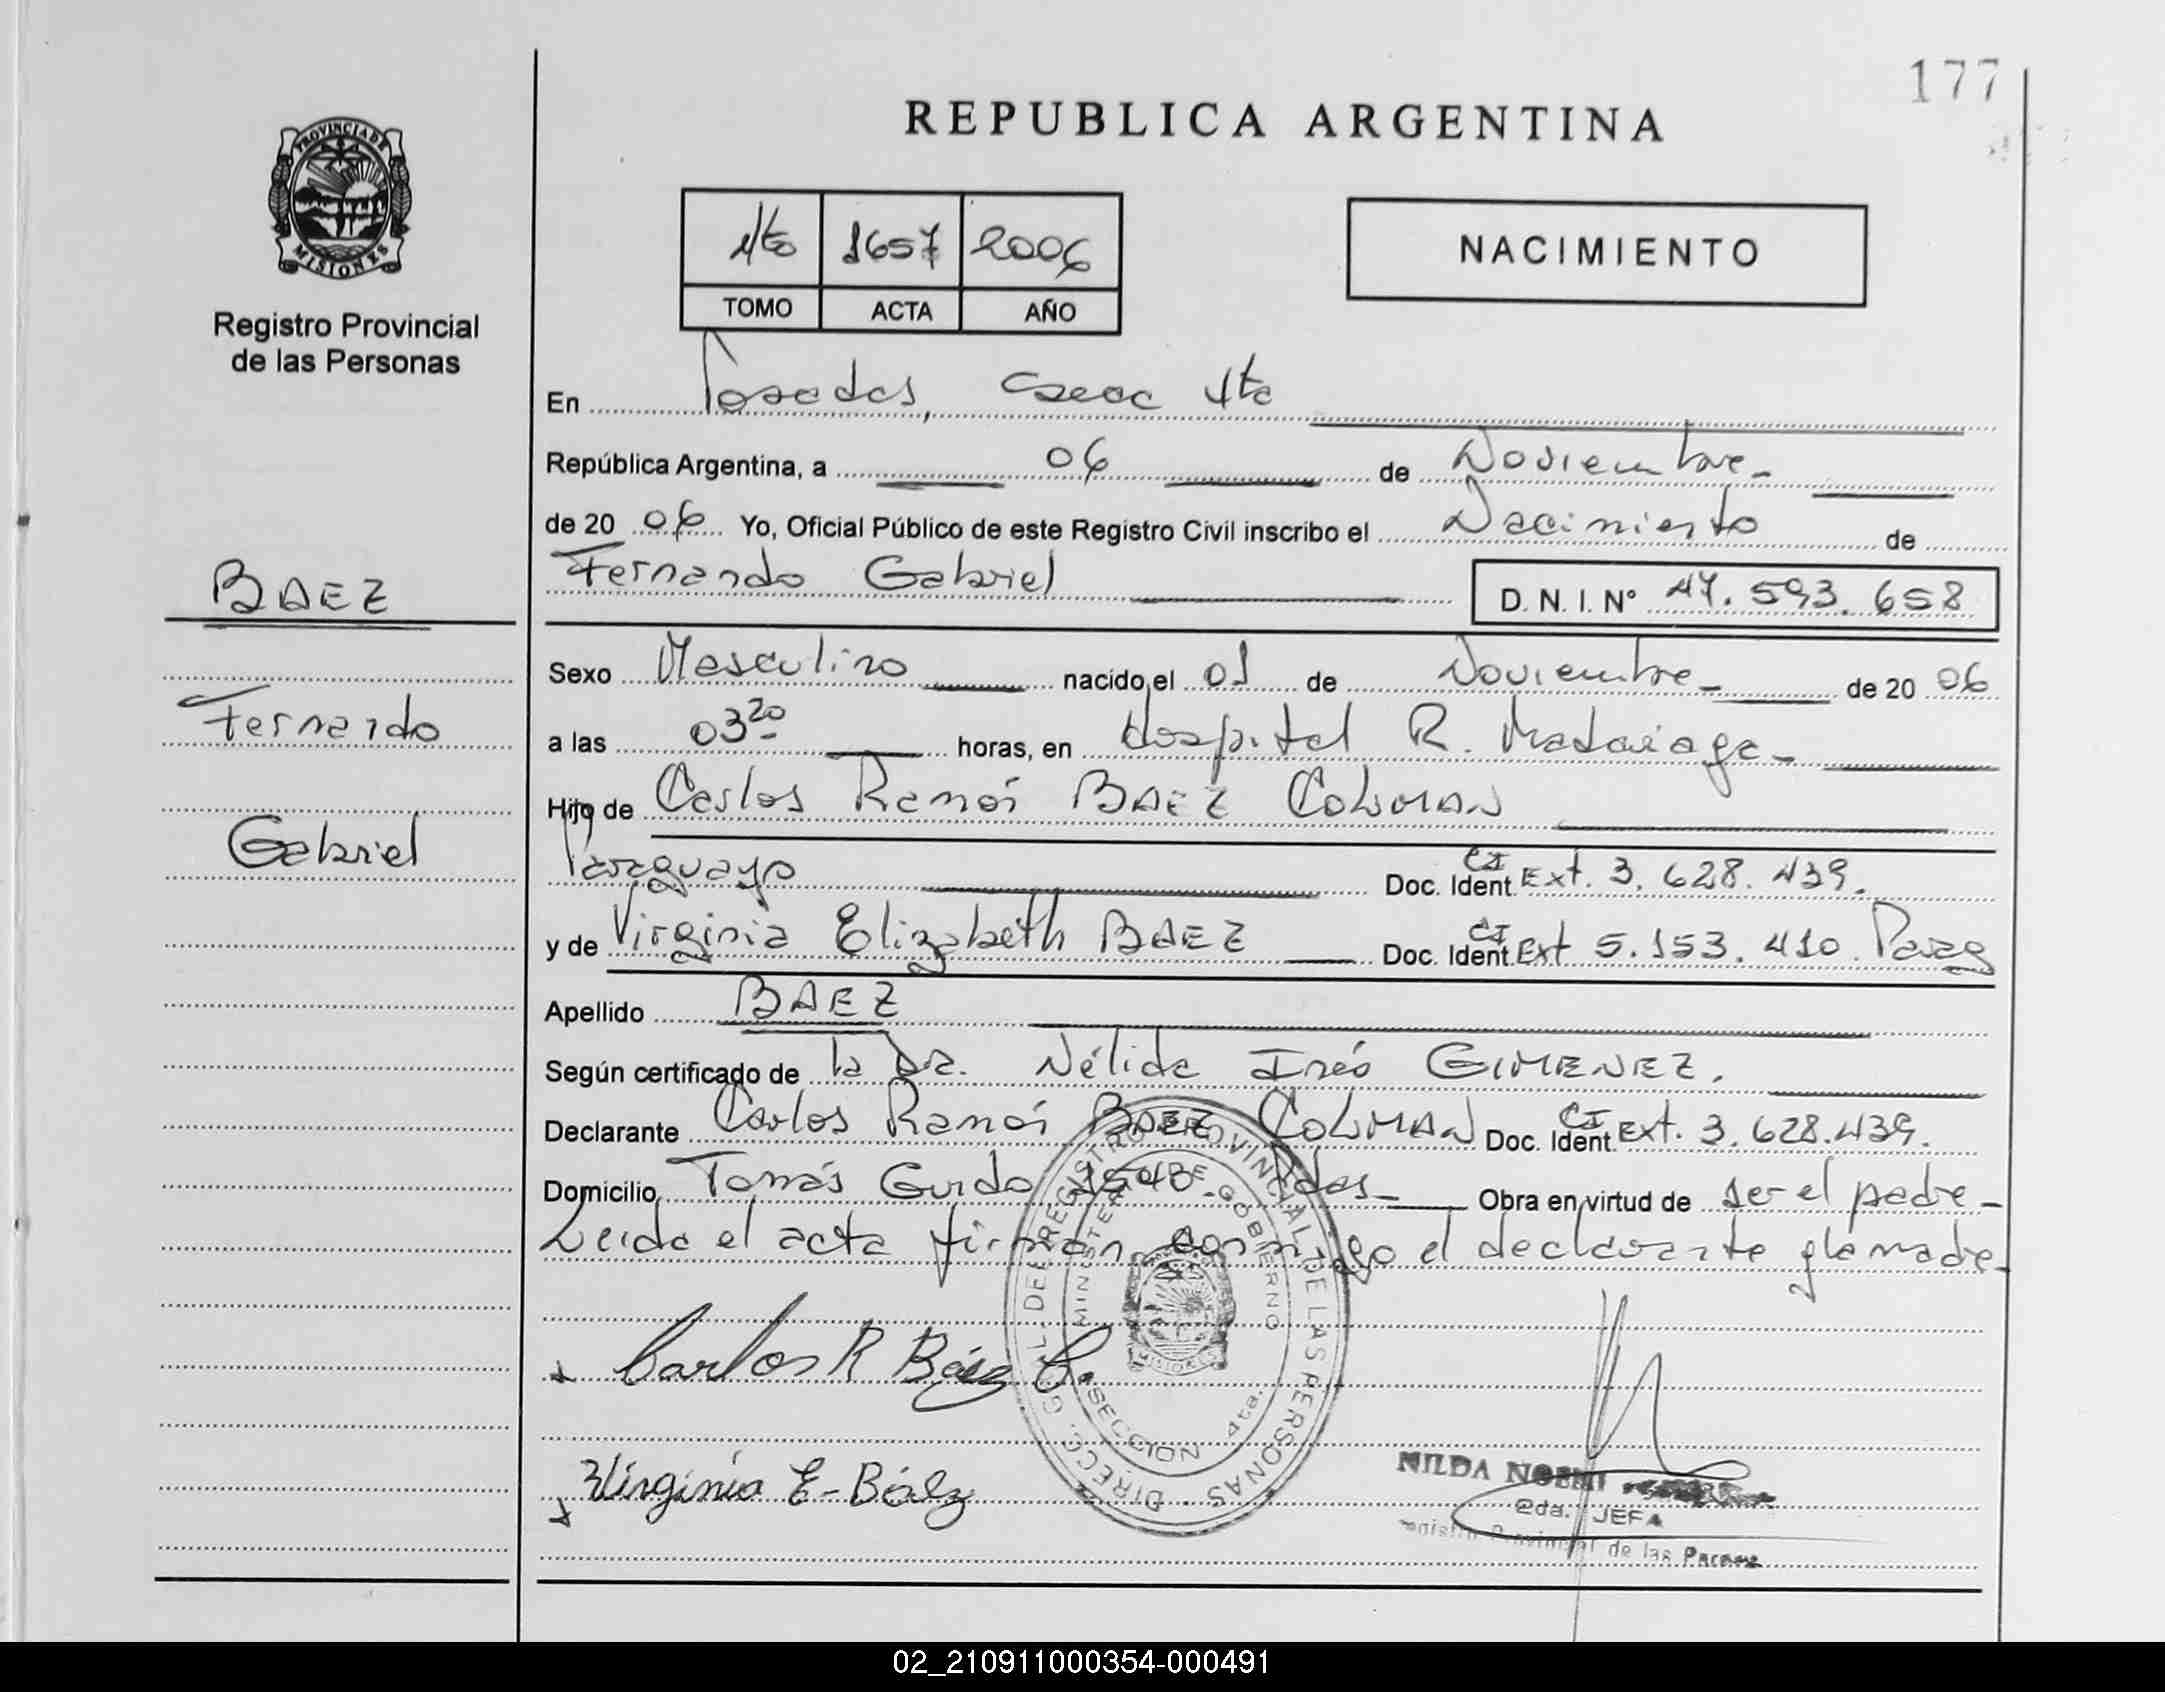 177
REPUBLICA ARGENTINA
PROVINCIA DE
MISIONES
Registro Provincial
de las Personas
4to 1657 2006
TOMO ACTA AÑO
NACIMIENTO
En Posadas, Secc 4ta
República Argentina, a 06 de Noviembre
de 20 06 Yo, Oficial Público de este Registro Civil inscribo el Nacimiento de
Fernando Gabriel D. N. I. N° 47.593.658
BAEZ
Fernando
Gabriel
Sexo Masculino nacido el 01 de Noviembre de 20 06
a las 03 20 horas, en Hospital R. Madariaga
Hijo de Carlos Ramón BAEZ COLMAN
Paraguayo Doc. Ident. CI Ext. 3.628.439.
y de Virginia Elizabeth BAEZ Doc. Ident. CI Ext 5.153.410 Parag
Apellido BAEZ
Según certificado de la Dra. Nélida Inés GIMENEZ.
Declarante Carlos Ramón BAEZ COLMAN Doc. Ident. CI Ext. 3.628.439.
Domicilio Tomás Guido 1548. Pdas Obra en virtud de ser el padre
Leida el acta firman conmigo el declarante y la madre
DIRECC. GRAL. DEL REGISTRO PROVINCIAL DE LAS PERSONAS
MINISTERIO DE GOBIERNO
MISIONES
SECCION 4ta.
Carlos R Báez C.
Virginia E. Báez
NILDA NOEMI
JEFA
Provincial de las
02_210911000354-000491